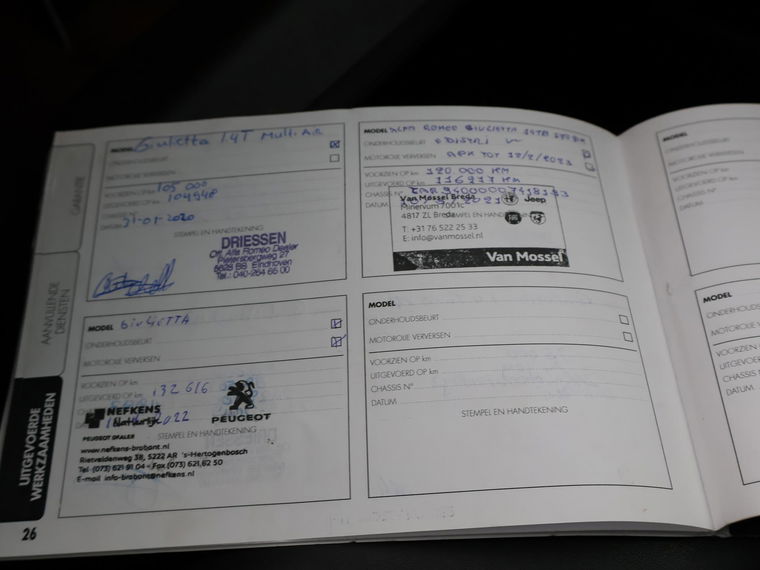 GARANTIE
AANVULLENDE
DIENSTEN
UITGEVOERDE
WERKZAAMHEDEN
26
MODEL Giulietta 1.4T Multi Air
ONDERHOUDSBEURT
MOTOROLIE VERVERSEN
VOORZIEN OP km 105 000
UITGEVOERD OP km 104948
CHASSIS N°
DATUM 31-01-2020
STEMPEL EN HANDTEKENING
DRIESSEN
Off. Alfa Romeo Dealer
Pietersbergweg 27
5628 BS Eindhoven
Tel.: 040-264 65 00
MODEL ALFA ROMEO GIULIETTA
ONDERHOUDSBEURT
MOTOROLIE VERVERSEN APK TOT
VOORZIEN OP km 120 000 KM
UITGEVOERD OP km 116217 KM
CHASSIS N°
DATUM 2021
Van Mossel Breda
Minervum 7001c
4817 ZL Breda
Jeep
STEMPEL EN HANDTEKENING
T: +31 76 522 25 33
E: info@vanmossel.nl
Van Mossel
MODEL GiuLiETTA
ONDERHOUDSBEURT
MOTOROLIE VERVERSEN
VOORZIEN OP km
UITGEVOERD OP km 132 616
2022
NEFKENS
Natuurlijk
PEUGEOT
PEUGEOT DEALER
STEMPEL EN HANDTEKENING
www.nefkens-brabant.nl
Rietveldenweg 38, 5222 AR 's-Hertogenbosch
Tel (073) 621 91 04 - Fax (073) 621 62 50
E-mail info-brabant@nefkens.nl
MODEL
ONDERHOUDSBEURT
MOTOROLIE VERVERSEN
VOORZIEN OP km
UITGEVOERD OP km
CHASSIS N°
DATUM
STEMPEL EN HANDTEKENING
MODEL
ONDERHOUDSBEURT
MOTOROLIE
VOORZIEN OP
UITGEVOERD
CHASSIS N°
DATUM
MODEL
ONDERHOUDS
MOTOROLIE VE
VOORZIEN
UITGEVOE
CHASSIS
DATUM